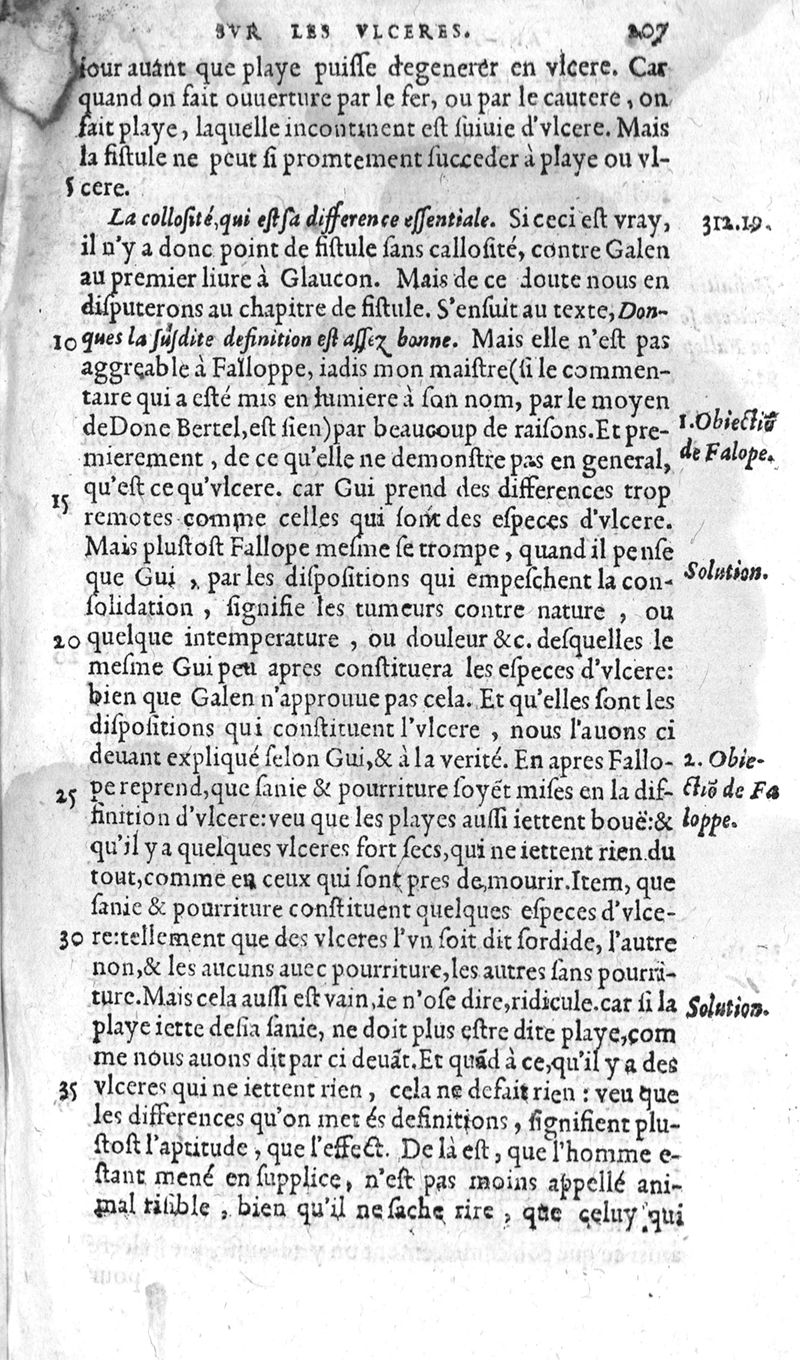 SVR LES VLCERES. 207
iour auant que playe puisse degenerer en vlcere. Car
quand on fait ouuerture par le fer, ou par le cautere, on
fait playe, laquelle incontinent est suiuie d'vlcere. Mais
la fistule ne peut si promtement succeder à playe ou vl-
5 cere.
La collosité, qui est sa difference essentiale. Si ceci est vray, 312.19.
il n'y a donc point de fistule sans callosité, contre Galen
au premier liure à Glaucon. Mais de ce doute nous en
disputerons au chapitre de fistule. S'ensuit au texte, Don-
10 ques la susdite definition est assez bonne. Mais elle n'est pas
aggreable à Falloppe, iadis mon maistre (si le commen-
taire qui a esté mis en lumiere à son nom, par le moyen
de Done Bertel, est sien) par beaucoup de raisons. Et pre- 1. Obiectiõ
mierement, de ce qu'elle ne demonstre pas en general, de Falope.
15 qu'est ce qu'vlcere. car Gui prend des differences trop
remotes comme celles qui sont des especes d'vlcere.
Mais plustost Fallope mesme se trompe, quand il pense
que Gui, par les dispositions qui empeschent la con- Solution.
solidation, signifie les tumeurs contre nature, ou
20 quelque intemperature, ou douleur &c. desquelles le
mesme Gui peu apres constituera les especes d'vlcere:
bien que Galen n'approuue pas cela. Et qu'elles sont les
dispositions qui constituent l'vlcere, nous l'auons ci
deuant expliqué selon Gui, & à la verité. En apres Fallo- 2. Obie-
25 pe reprend, que sanie & pourriture soyẽt mises en la dif- ctiõ de Fa
finition d'vlcere: veu que les playes aussi iettent bouë: & loppe.
qu'il y a quelques vlceres fort secs, qui ne iettent rien du
tout, comme en ceux qui sont pres de mourir. Item, que
sanie & pourriture constituent quelques especes d'vlce-
30 re: tellement que des vlceres l'vn soit dit sordide, l'autre
non, & les aucuns auec pourriture, les autres sans pourri-
ture. Mais cela aussi est vain, ie n'ose dire, ridicule. car si la Solution.
playe iette desia sanie, ne doit plus estre dite playe, com
me nous auons dit par ci deuãt. Et quãd à ce, qu'il y a des
35 vlceres qui ne iettent rien, cela ne defait rien : veu que
les differences qu'on met és definitions, signifient plu-
stost l'aptitude, que l'effect. De là est, que l'homme e-
stant mené en supplice, n'est pas moins appellé ani-
mal risible, bien qu'il ne sache rire, que celuy qui